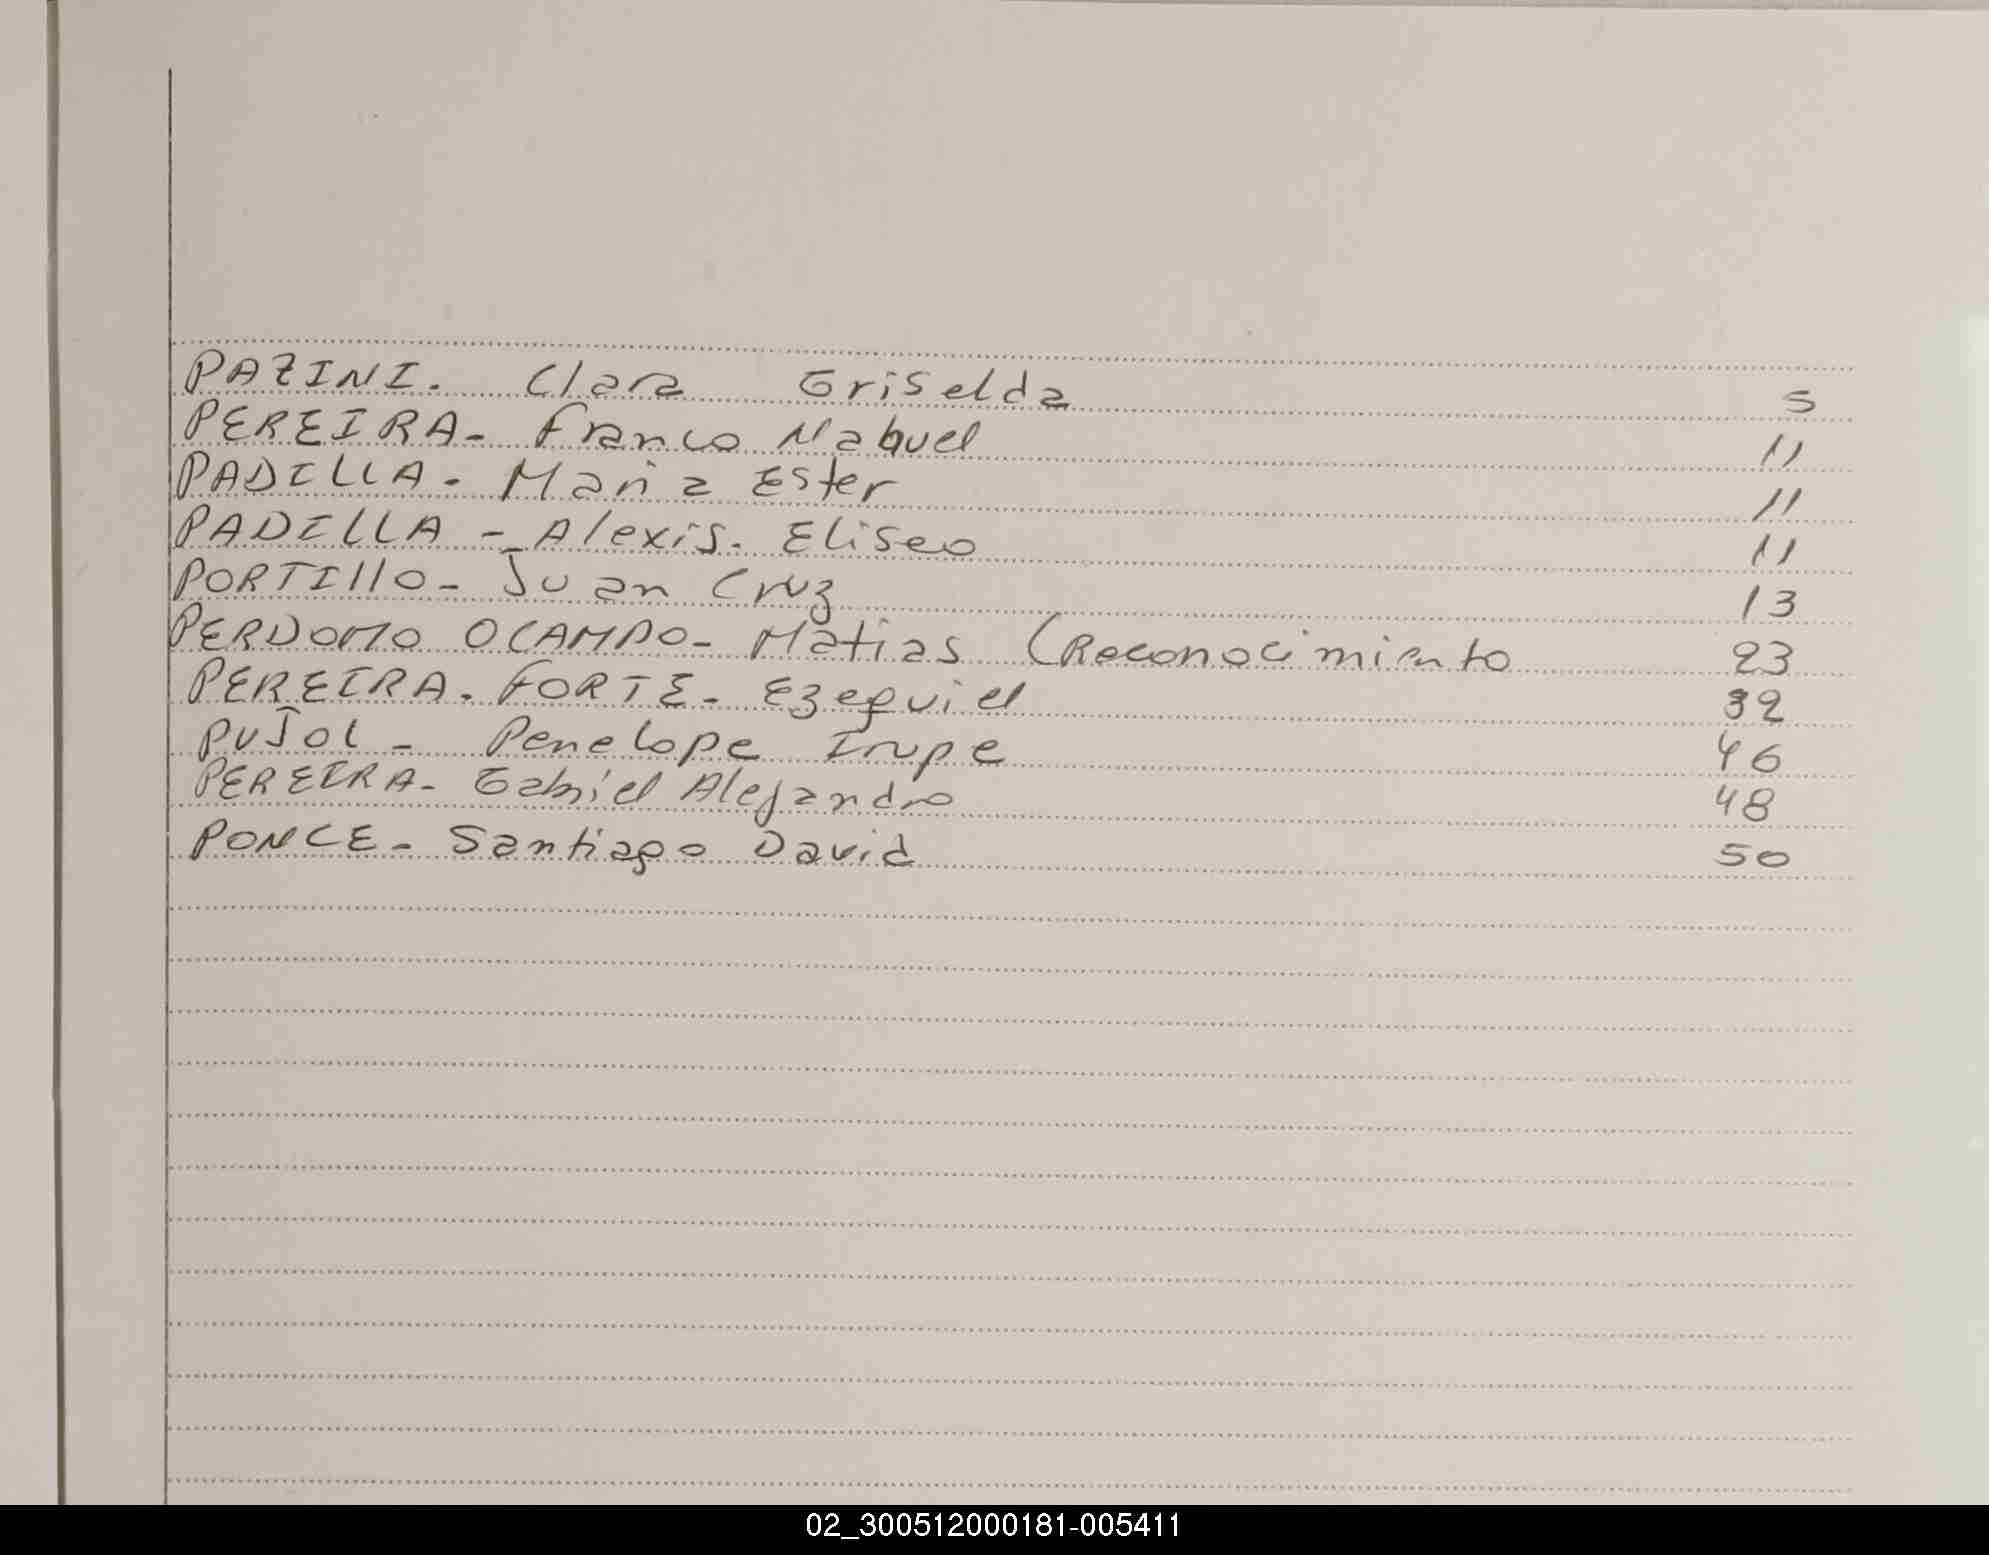 PAZINI. Clara Griselda 5
PEREIRA- Franco Nahuel 11
PADILLA. Maria Ester 11
PADILLA - Alexis. Eliseo 11
PORTIllO- Juan Cruz 13
PERDOMO OCAMPO- Matias (Reconocimiento 23
PEREIRA. FORTE- Ezequiel 32
PUJOL - Penelope Irupe 46
PEREIRA- Gabriel Alejandro 48
PONCE- Santiago David 50
02_300512000181-005411